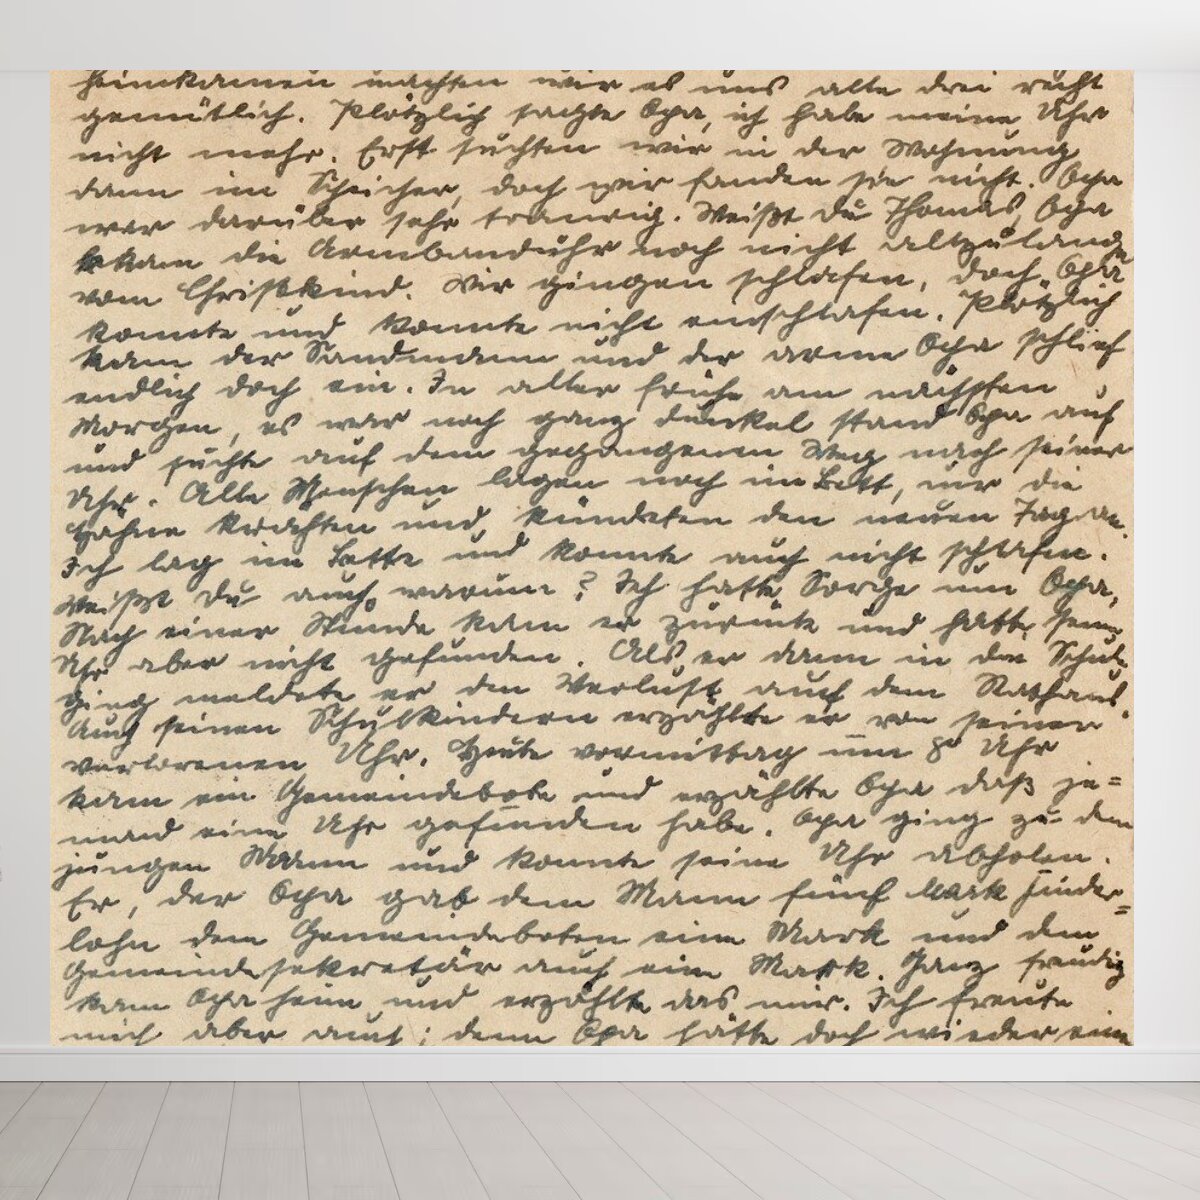 heimkamen machten wir es uns alle drei recht
gemütlich. Plötzlich sagte Opa, ich habe meine Uhr
nicht mehr. Erst suchten wir in der Wohnung
dann im Speicher, doch wir fanden sie nicht. Opa
war darüber sehr traurig. Weißt du Thomas, Opa
bekam die Armbanduhr noch nicht allzulange
vom Christkind. Wir gingen schlafen, doch Opa
konnte und konnte nicht einschlafen. Plötzlich
kam der Sandmann und der arme Opa schlief
endlich doch ein. In aller frühe am nächsten
Morgen, es war noch ganz dunkel stand Opa auf
und suchte auf dem gegangenen Weg nach seiner
Uhr. Alle Menschen lagen noch im Bett, nur die
Hähne krächten und kündeten den neuen Tag an.
Ich lag im Bette und konnte auch nicht schlafen.
Weißt du auch warum? Ich hatte Sorge um Opa,
Nach einer Stunde kam er zurück und hatte seine
Uhr aber nicht gefunden. Als er dann in die Schule
ging meldete er den Verlust auf dem Rathaus.
Auch seinen Schulkindern erzählte er von seiner
verlorenen Uhr. Heute vormittag um 8 Uhr
kam ein Gemeindebote und erzählte Opa daß je=
mand eine Uhr gefunden habe. Opa ging zu dem
jungen Mann und konnte seine Uhr abholen.
Er, der Opa gab dem Mann fünf Mark Finder=
lohn dem Gemeindeboten eine Mark und dem
Gemeindesekretär auch eine Mark. Ganz freudig
kam Opa heim und erzählte das mir. Ich freute
mich aber auch; denn Opa hatte doch wieder eine